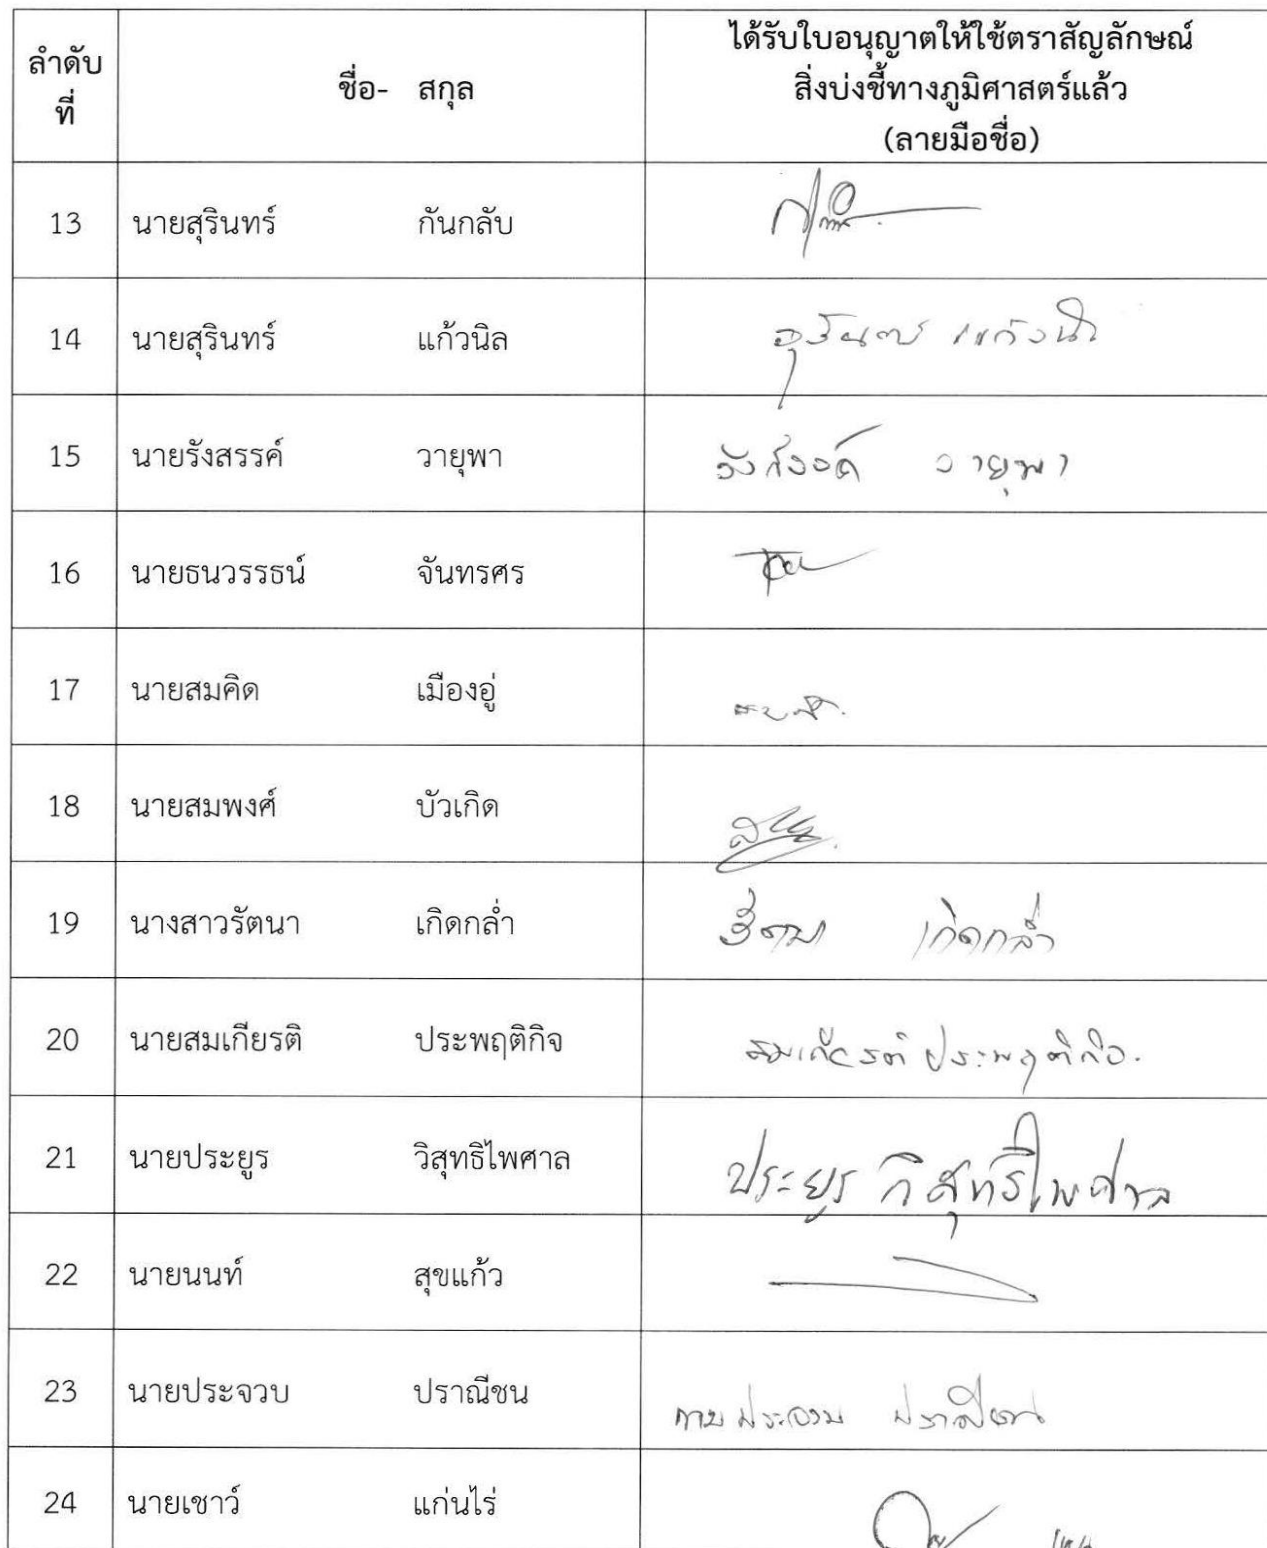 ลำดับ
ที่
ชื่อ- สกุล
ได้รับใบอนุญาตให้ใช้ตราสัญลักษณ์
สิ่งบ่งชี้ทางภูมิศาสตร์แล้ว
(ลายมือชื่อ)
13 นายสุรินทร์ กันกลับ
14 นายสุรินทร์ แก้วนิล
15 นายรังสรรค์ วายุพา รังสรรค์ วายุพา
16 นายธนวรรธน์ จันทรศร
17 นายสมคิด เมืองอู่
18 นายสมพงศ์ บัวเกิด
19 นางสาวรัตนา เกิดกล่ำ รัตนา เกิดกล่ำ
20 นายสมเกียรติ ประพฤติกิจ สมเกียรติ ประพฤติกิจ.
21 นายประยูร วิสุทธิไพศาล ประยูร วิสุทธิไพศาล
22 นายนนท์ สุขแก้ว
23 นายประจวบ ปราณีชน
24 นายเชาว์ แก่นไร่